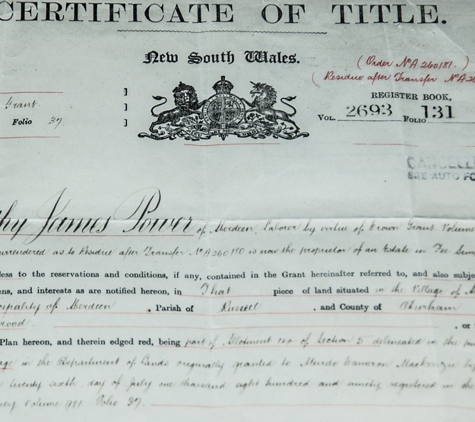 CERTIFICATE OF TITLE.
New South Wales.
(Order No A 260181.)
(Residue after Transfer No A 26
REGISTER BOOK,
Grant.
VOL. 2693 FOLIO 131
Folio 37
CANCELLED
SEE AUTO FO
James Power of Aberdeen, Laborer by virtue of Crown Grant Volume
surrendered as to Residue after Transfer No A 260180 is now the proprietor of an Estate in Fee Sim
less to the reservations and conditions, if any, contained in the Grant hereinafter referred to, and also subj
ens, and interests as are notified hereon, in That piece of land situated in the Village of A
cipality of Aberdeen, Parish of Russell, and County of Durham
wood, or
Plan hereon, and therein edged red, being part of Allotment two of Section 5 delineated in the
age in the Department of Lands originally granted to Murdo Cameron Mackenzie by
twenty sixth day of July one thousand eight hundred and ninety registered in the
Volume 991 Folio 37.